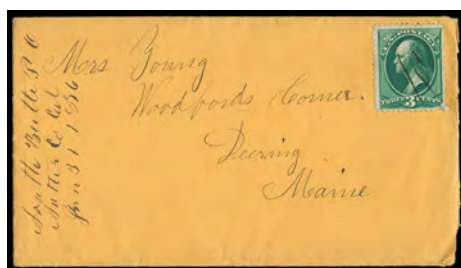 South Butte P O
Sutter Co Cal
Jan 31 1886
Mrs Young
Woodfords Corner.
Deering
Maine
U.S. POSTAGE
THREE 3 CENTS